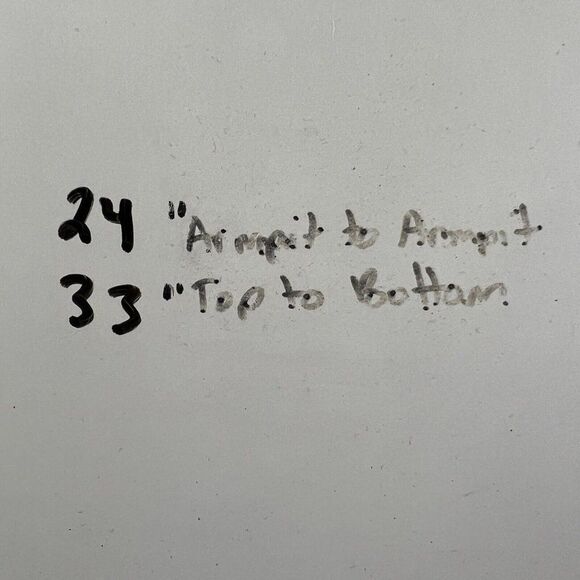 24 "Armpit to Armpit
33 "Top to Bottom